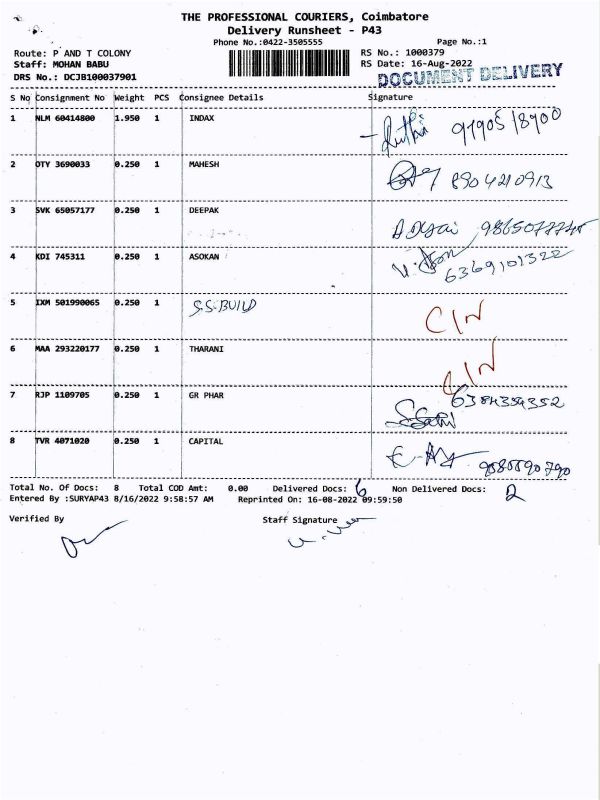 THE PROFESSIONAL COURIERS, Coimbatore
Delivery Runsheet - P43
Phone No.:0422-3505555 Page No.:1
Route: P AND T COLONY RS No.: 1000379
Staff: MOHAN BABU RS Date: 16-Aug-2022
DRS No.: DCJB100037901 DOCUMENT DELIVERY
S No Consignment No Weight PCS Consignee Details Signature
1 NLM 60414800 1.950 1 INDAX
2 OTY 3690033 0.250 1 MAHESH 8904210913
3 SVK 65057177 0.250 1 DEEPAK
4 KDI 745311 0.250 1 ASOKAN 6369101322
5 IXM 501990065 0.250 1 S.S.BUILD C/N
6 MAA 293220177 0.250 1 THARANI C/N
7 RJP 1109705 0.250 1 GR PHAR 6384354352
8 TVR 4071020 0.250 1 CAPITAL
Total No. Of Docs: 8 Total COD Amt: 0.00 Delivered Docs: 6 Non Delivered Docs: 2
Entered By :SURYAP43 8/16/2022 9:58:57 AM Reprinted On: 16-08-2022 09:59:50
Verified By Staff Signature